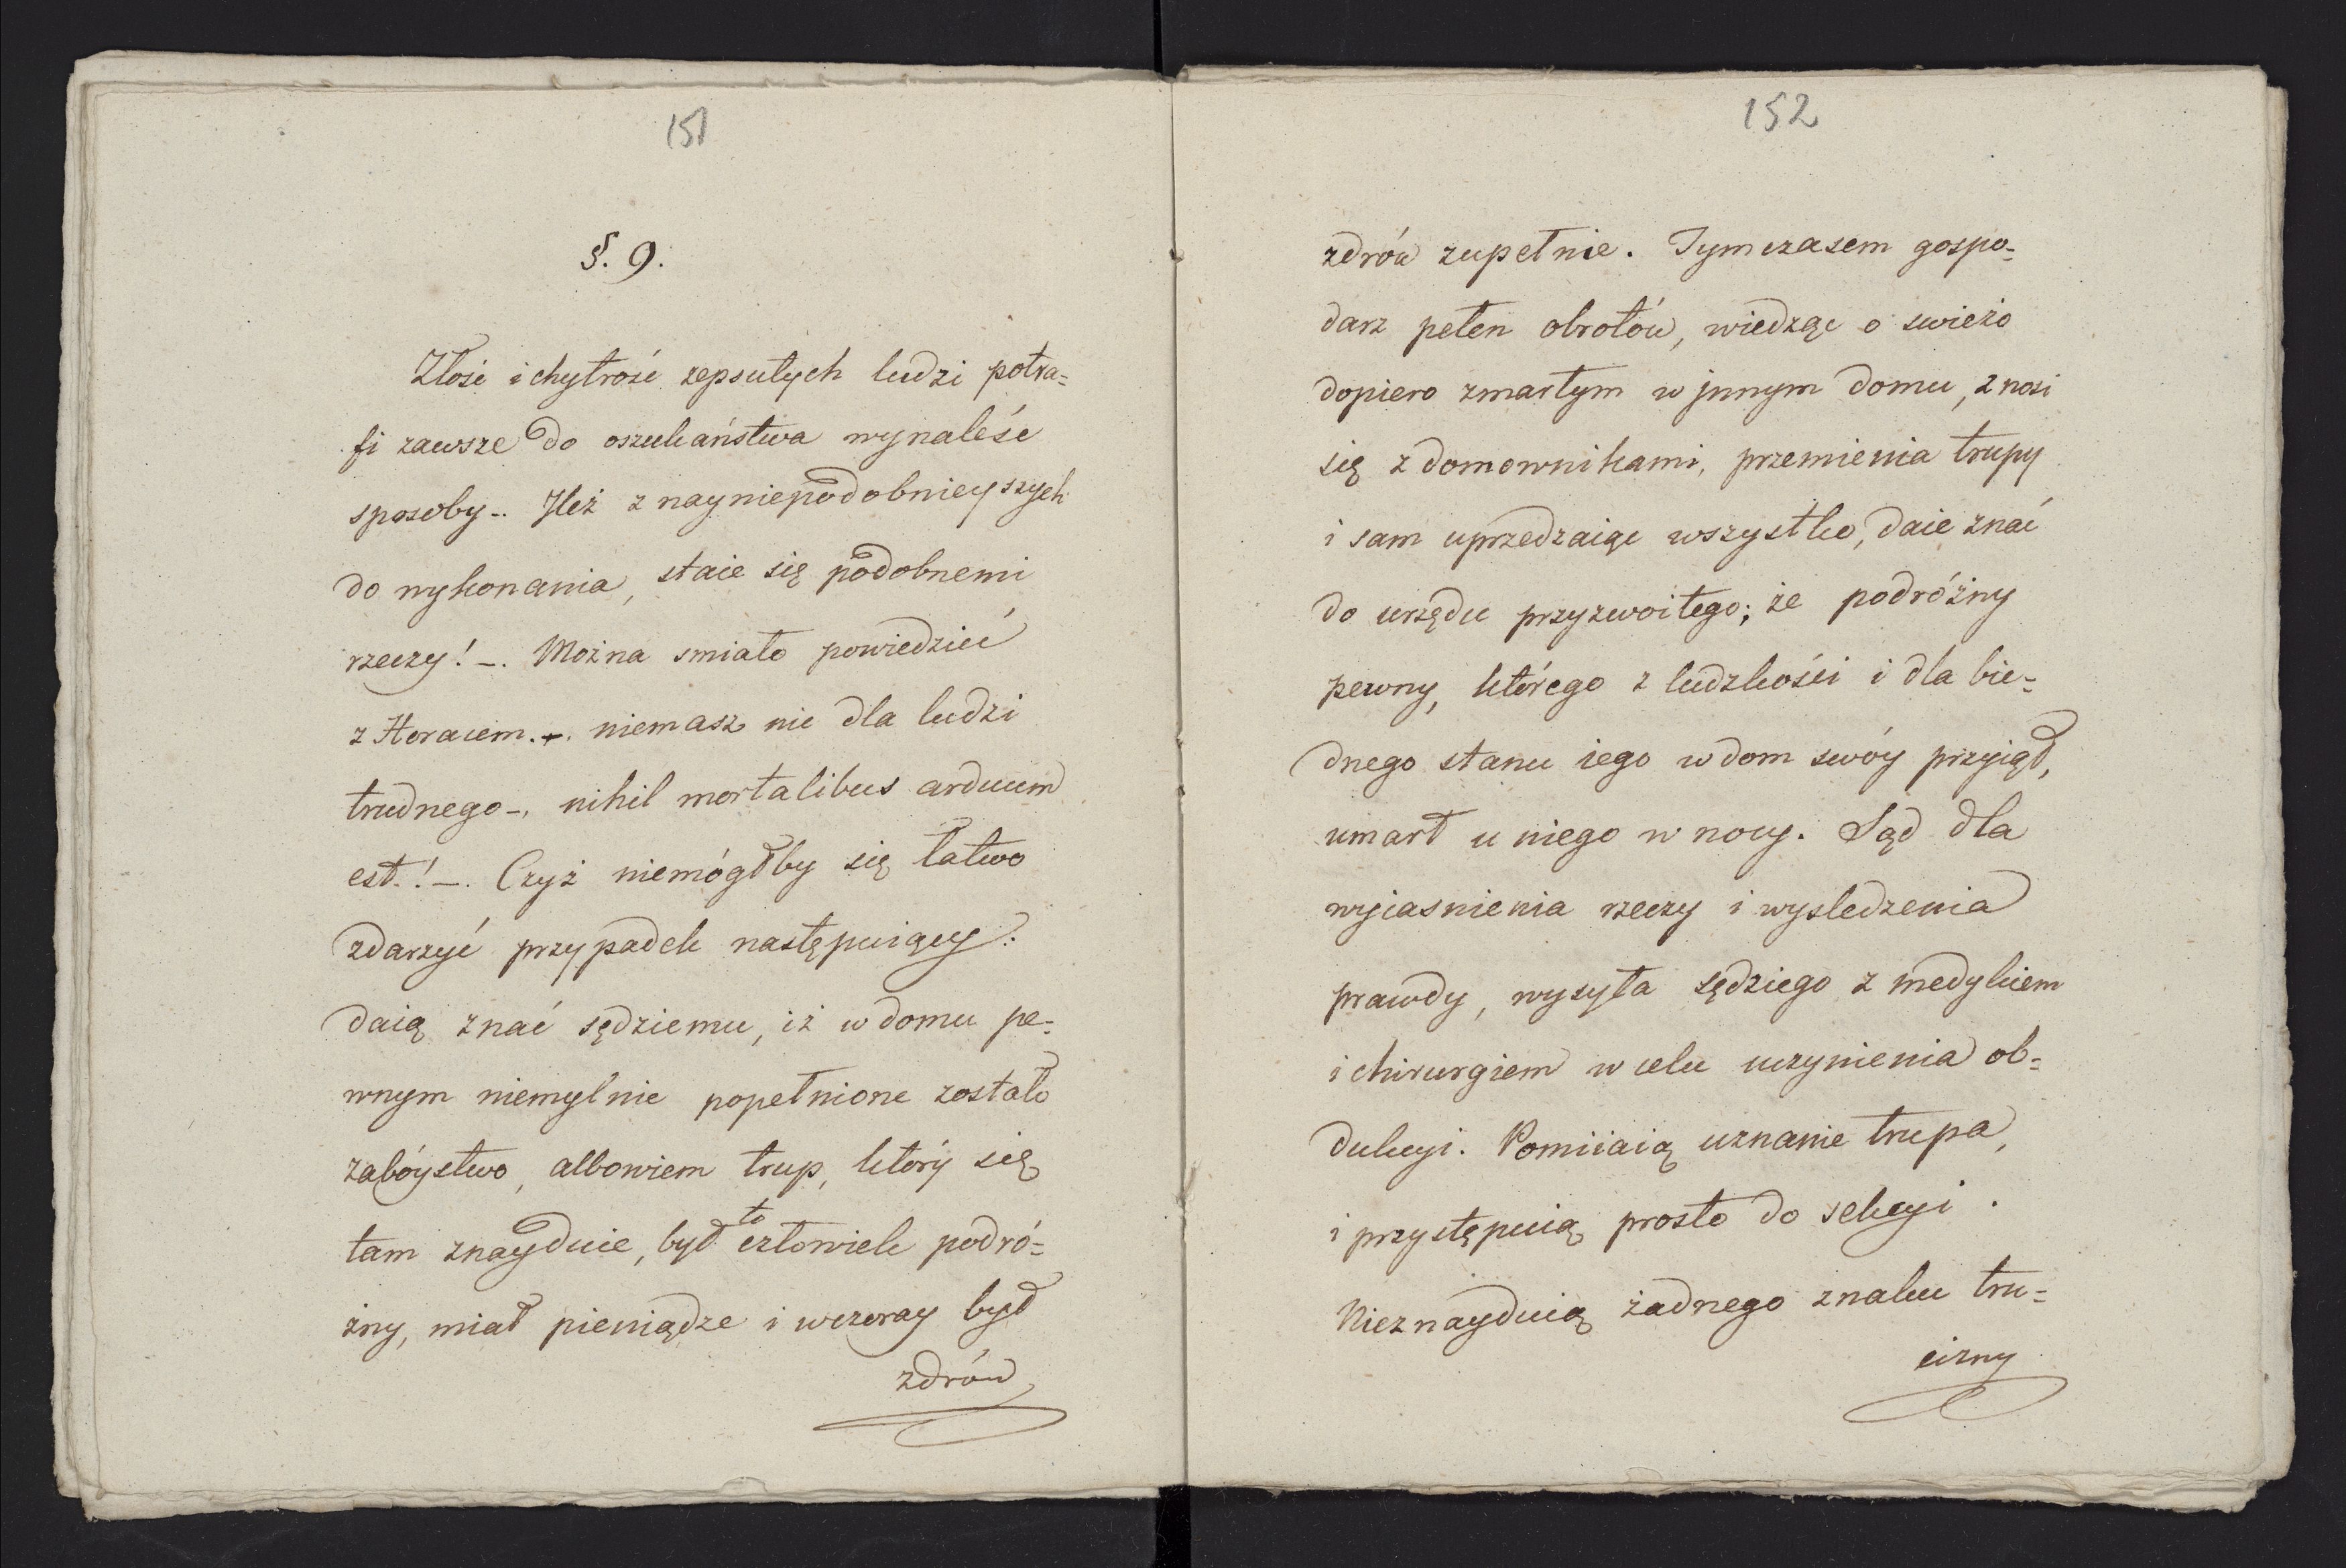 151
§. 9.
Złość i chytrość zepsutych ludzi potra=
fi zawsze do oszukaństwa wynaleść
sposoby -. Jleż z nayniepodobnieyszych
do wykonania, staie się podobnemi
rzeczy! -. Można smiało powiedzieć
z Horacem. -. niemasz nic dla ludzi
trudnego -, nihil mortalibus arduum
est.! -. Czyż niemógłby się łatwo
zdarzyć przypadek następuiący:
daią znać sędziemu, iż w domu pe=
wnym niemylnie popełnione zostało
zabóystwo, albowiem trup, który się
tam znayduie, był to człowiek podró=
żny, miał pieniądze i wczoray był
zdrów
152
zdrów zupełnie. Tymczasem gospo=
darz pełen obrotów, wiedząc o swieżo
dopiero zmarłym w jnnym domu, znosi
się z domownikami, przemienia trupy
i sam uprzedzaiąc wszystko, daie znać
do urzędu przyzwoitego; że podróżny
pewny, którego z ludzkości i dla bie=
dnego stanu iego w dom swóy przyiął,
umarł u niego w nocy. Sąd dla
wyiasnienia rzeczy i wysledzenia
prawdy, wysyła sędziego z medykiem
i chirurgiem w celu uczynienia ob=
dukcyi. Pomiiaią uznanie trupa,
i przystępuią prosto do sekcyi.
Nieznayduią żadnego znaku tru=
cizny